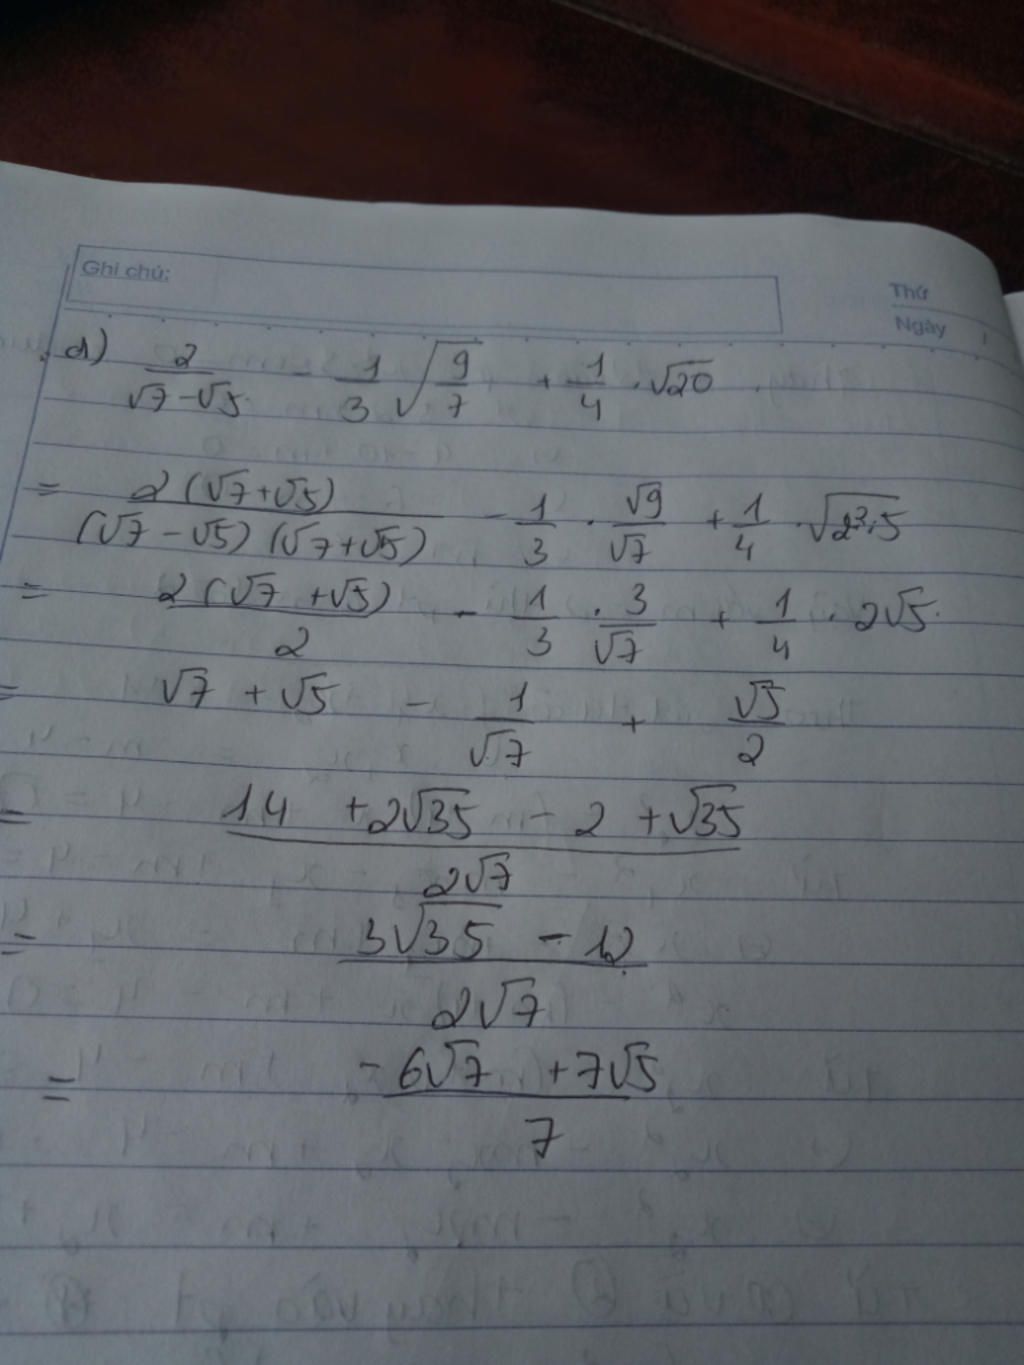 Ghi chú:
Thứ
Ngày
d) 2/(√7 - √5) - 1/3 √(9/7) + 1/4 . √20
= 2(√7 + √5)/((√7 - √5)(√7 + √5)) - 1/3 . √9/√7 + 1/4 . √(2².5)
= 2(√7 + √5)/2 - 1/3 . 3/√7 + 1/4 . 2√5
= √7 + √5 - 1/√7 + √5/2
= (14 + 2√35 - 2 + √35)/(2√7)
= (3√35 - 12)/(2√7)
= (-6√7 + 7√5)/7